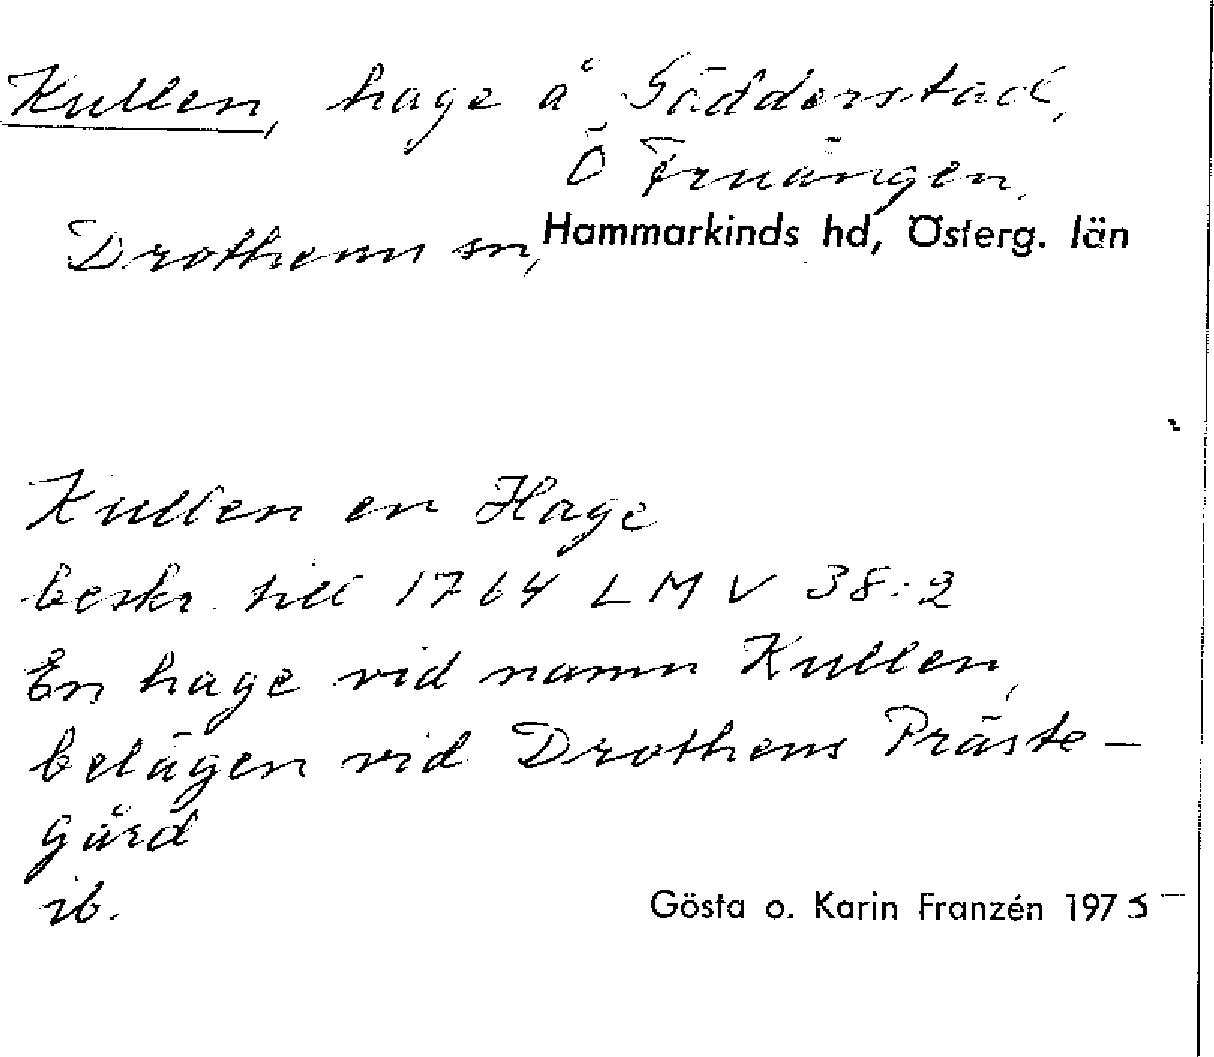 Kullen, hage å Gädderstad,
Ö Fruängen,
Drothems sn, Hammarkinds hd, Österg. län
Kullen en Hage
beskr. till 1764 LMV 38:2
En hage vid namn Kullen,
belägen vid Drothens Präste-
gård
ib.
Gösta o. Karin Franzén 1975